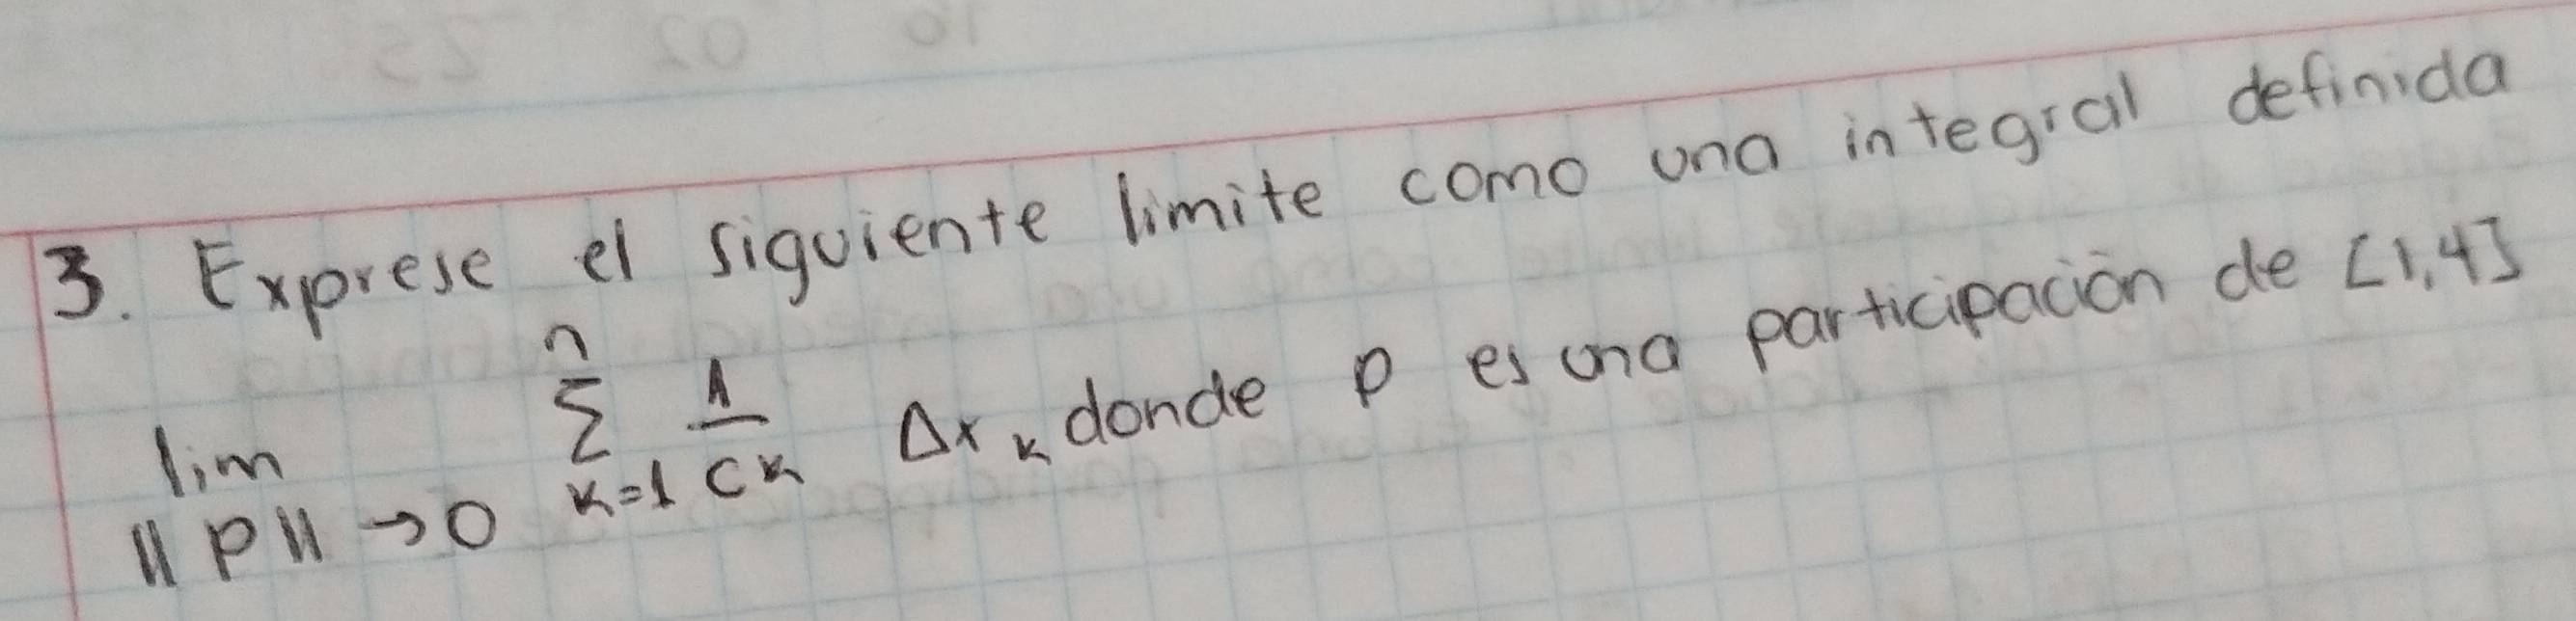 3. Exprese el siguiente limite como una integral definida
lim ||P||→0 n Σ k=1 1/ck Δxk donde p es una participación de [1,4]